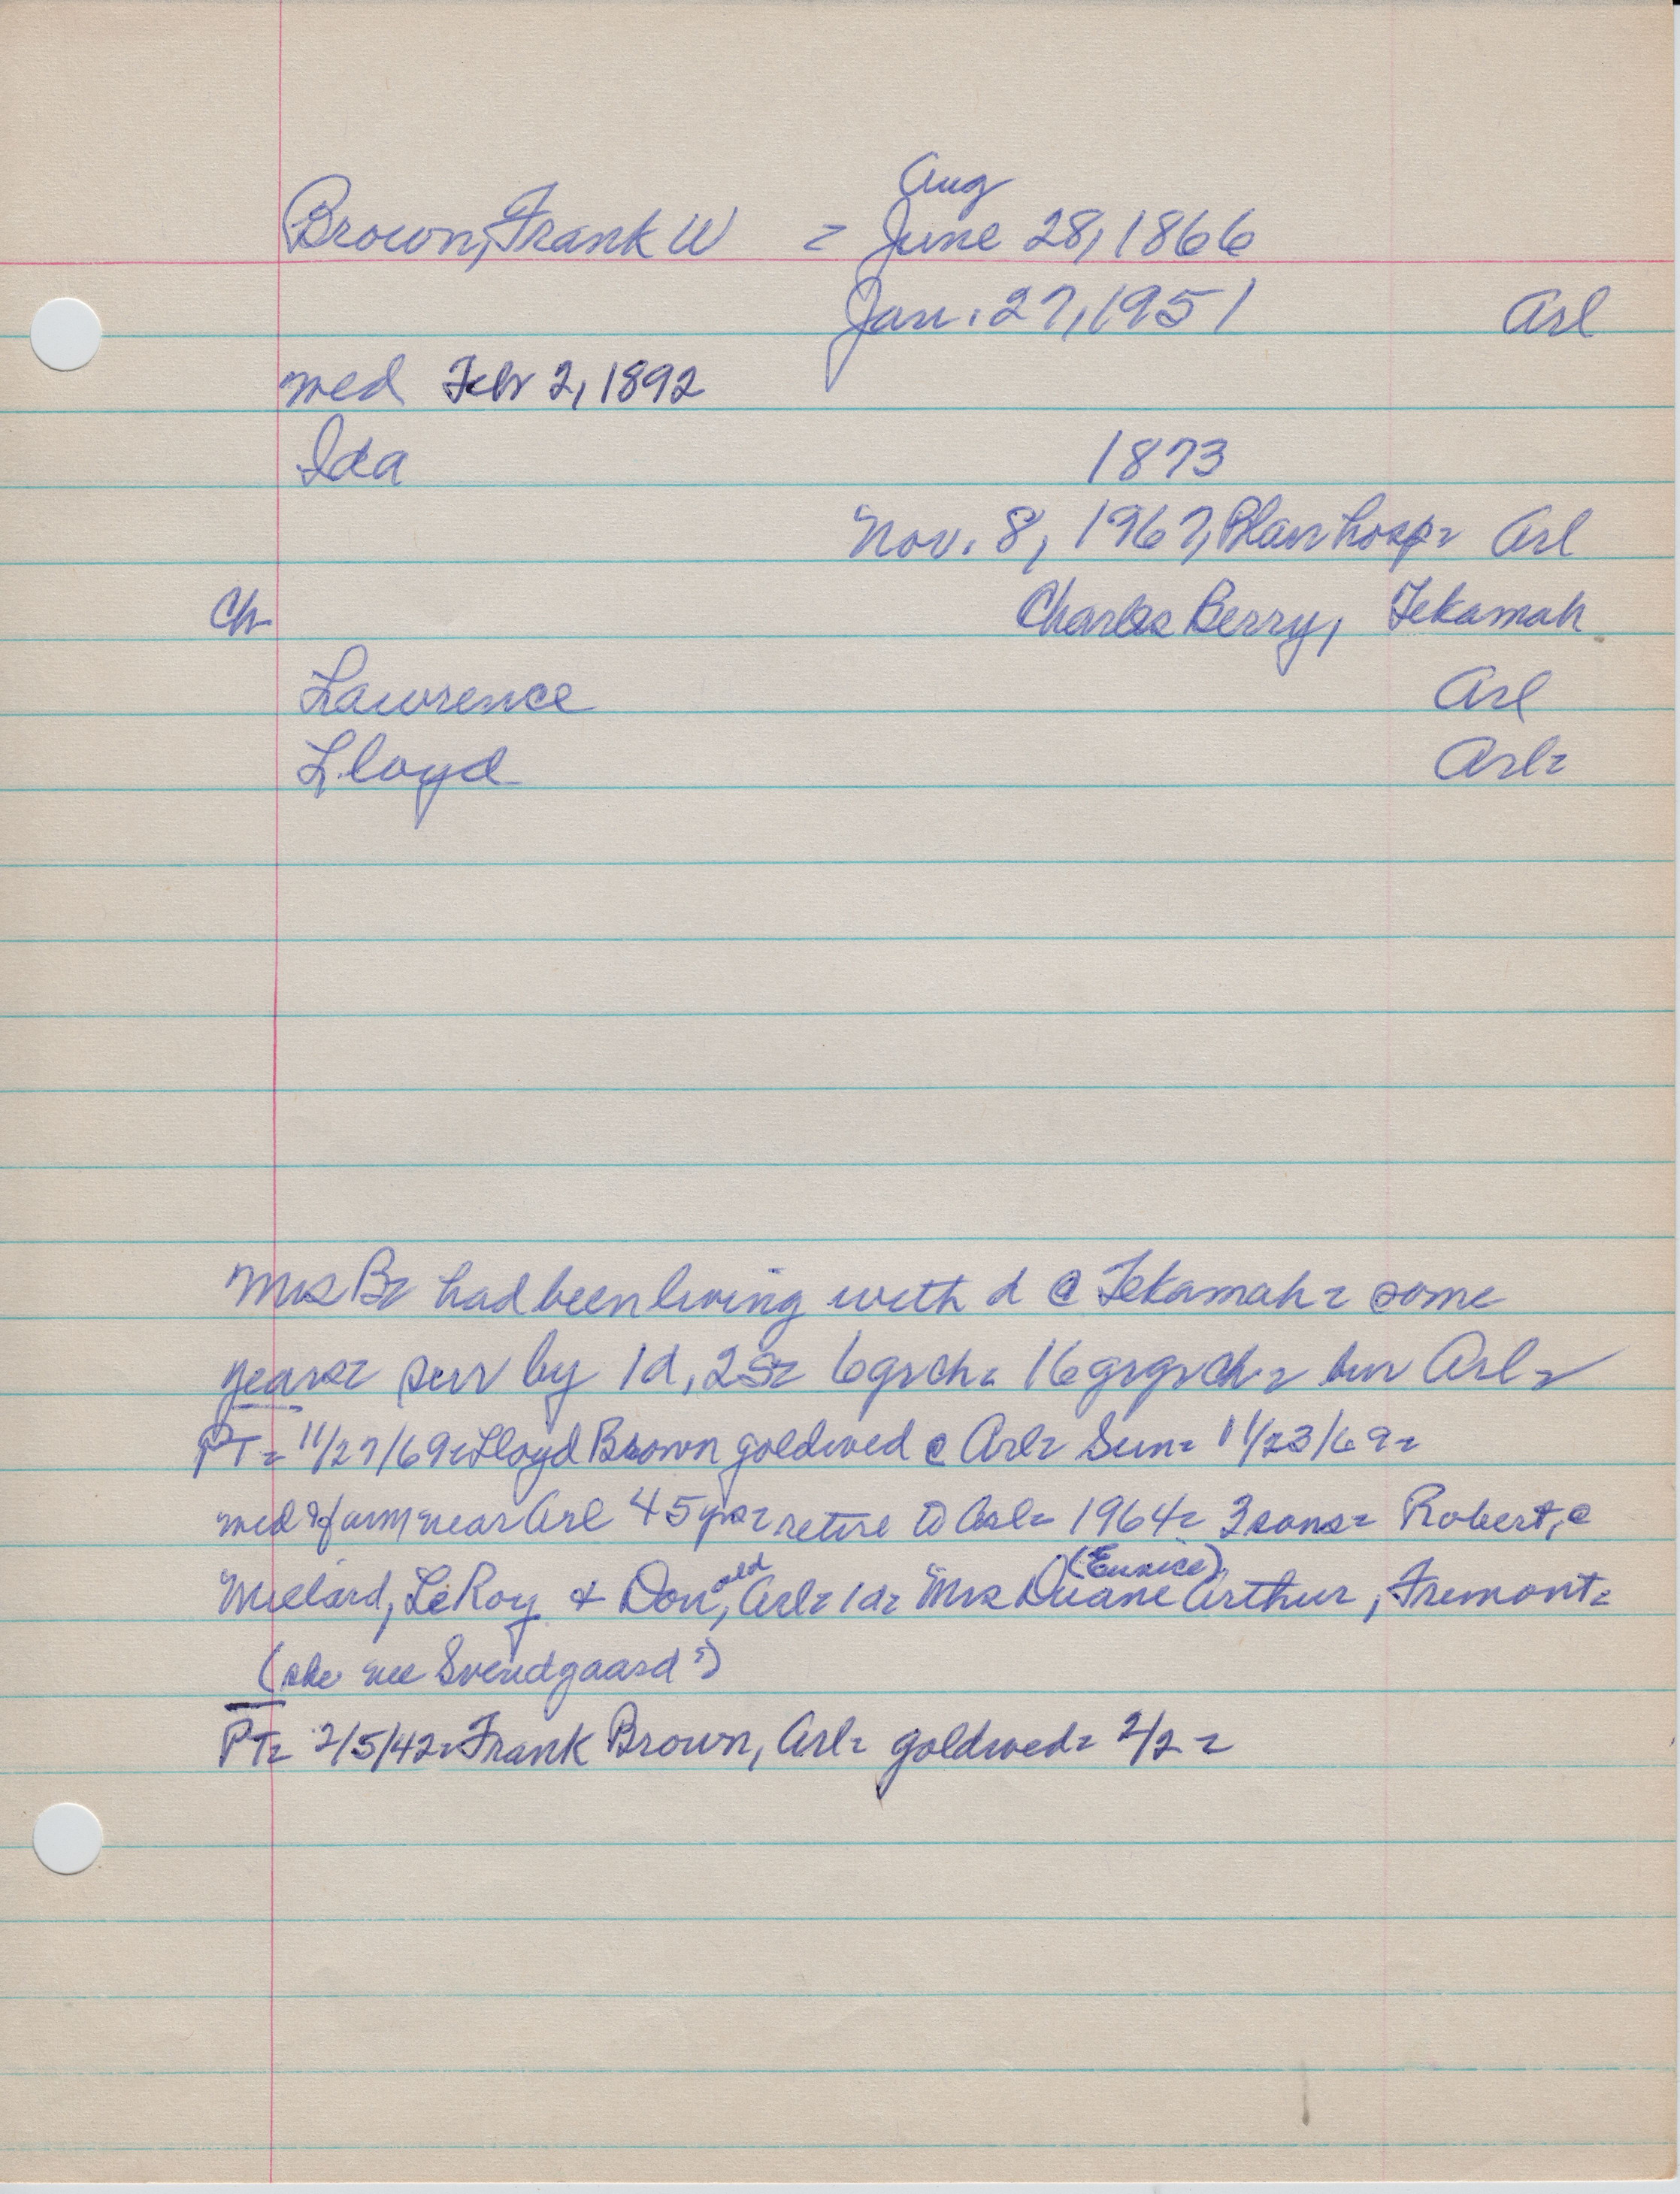 Aug
Brown, Frank W = June 28, 1866
Jan. 27, 1951 Arl
med Febr 2, 1892
Ida 1873
Nov. 8, 1967, Blair hosp= Arl
Ch Charles Berry, Tekamah
Lawrence Arl
Lloyd Arl=
Mrs B= had been living with d @ Tekamah= some
years= surv by 1d, 2s= 6grch= 16grgrch= bur Arl=
PT= 11/27/69=Lloyd Brown goldwed @ Arl= Sun= 11/23/69=
med & farm near Arl 45yrs= retire to Arl= 1964= 3sons= Robert, @
old (Eunice)
Millard, LeRoy & Don, Arl= 1d= Mrs Duane Arthur, Fremont=
(she nee Svendgaard?)
PT= 2/5/42=Frank Brown, Arl= goldwed= 2/2=